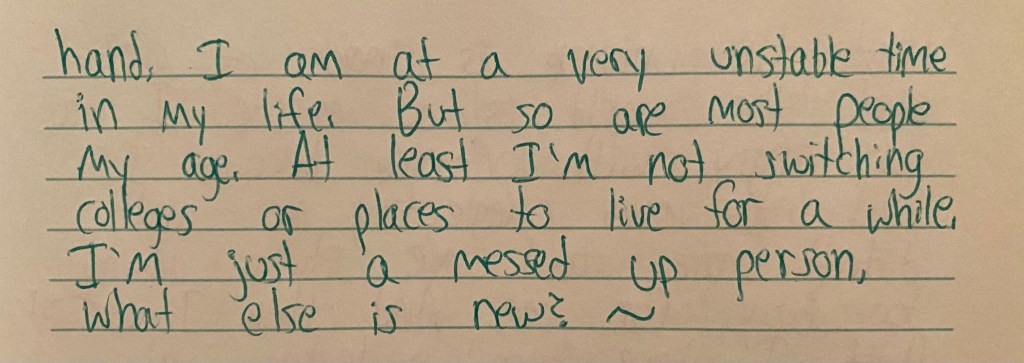 hand, I am at a very unstable time
in my life. But so are most people
my age. At least I'm not switching
colleges or places to live for a while.
I'm just a messed up person,
what else is new? ~